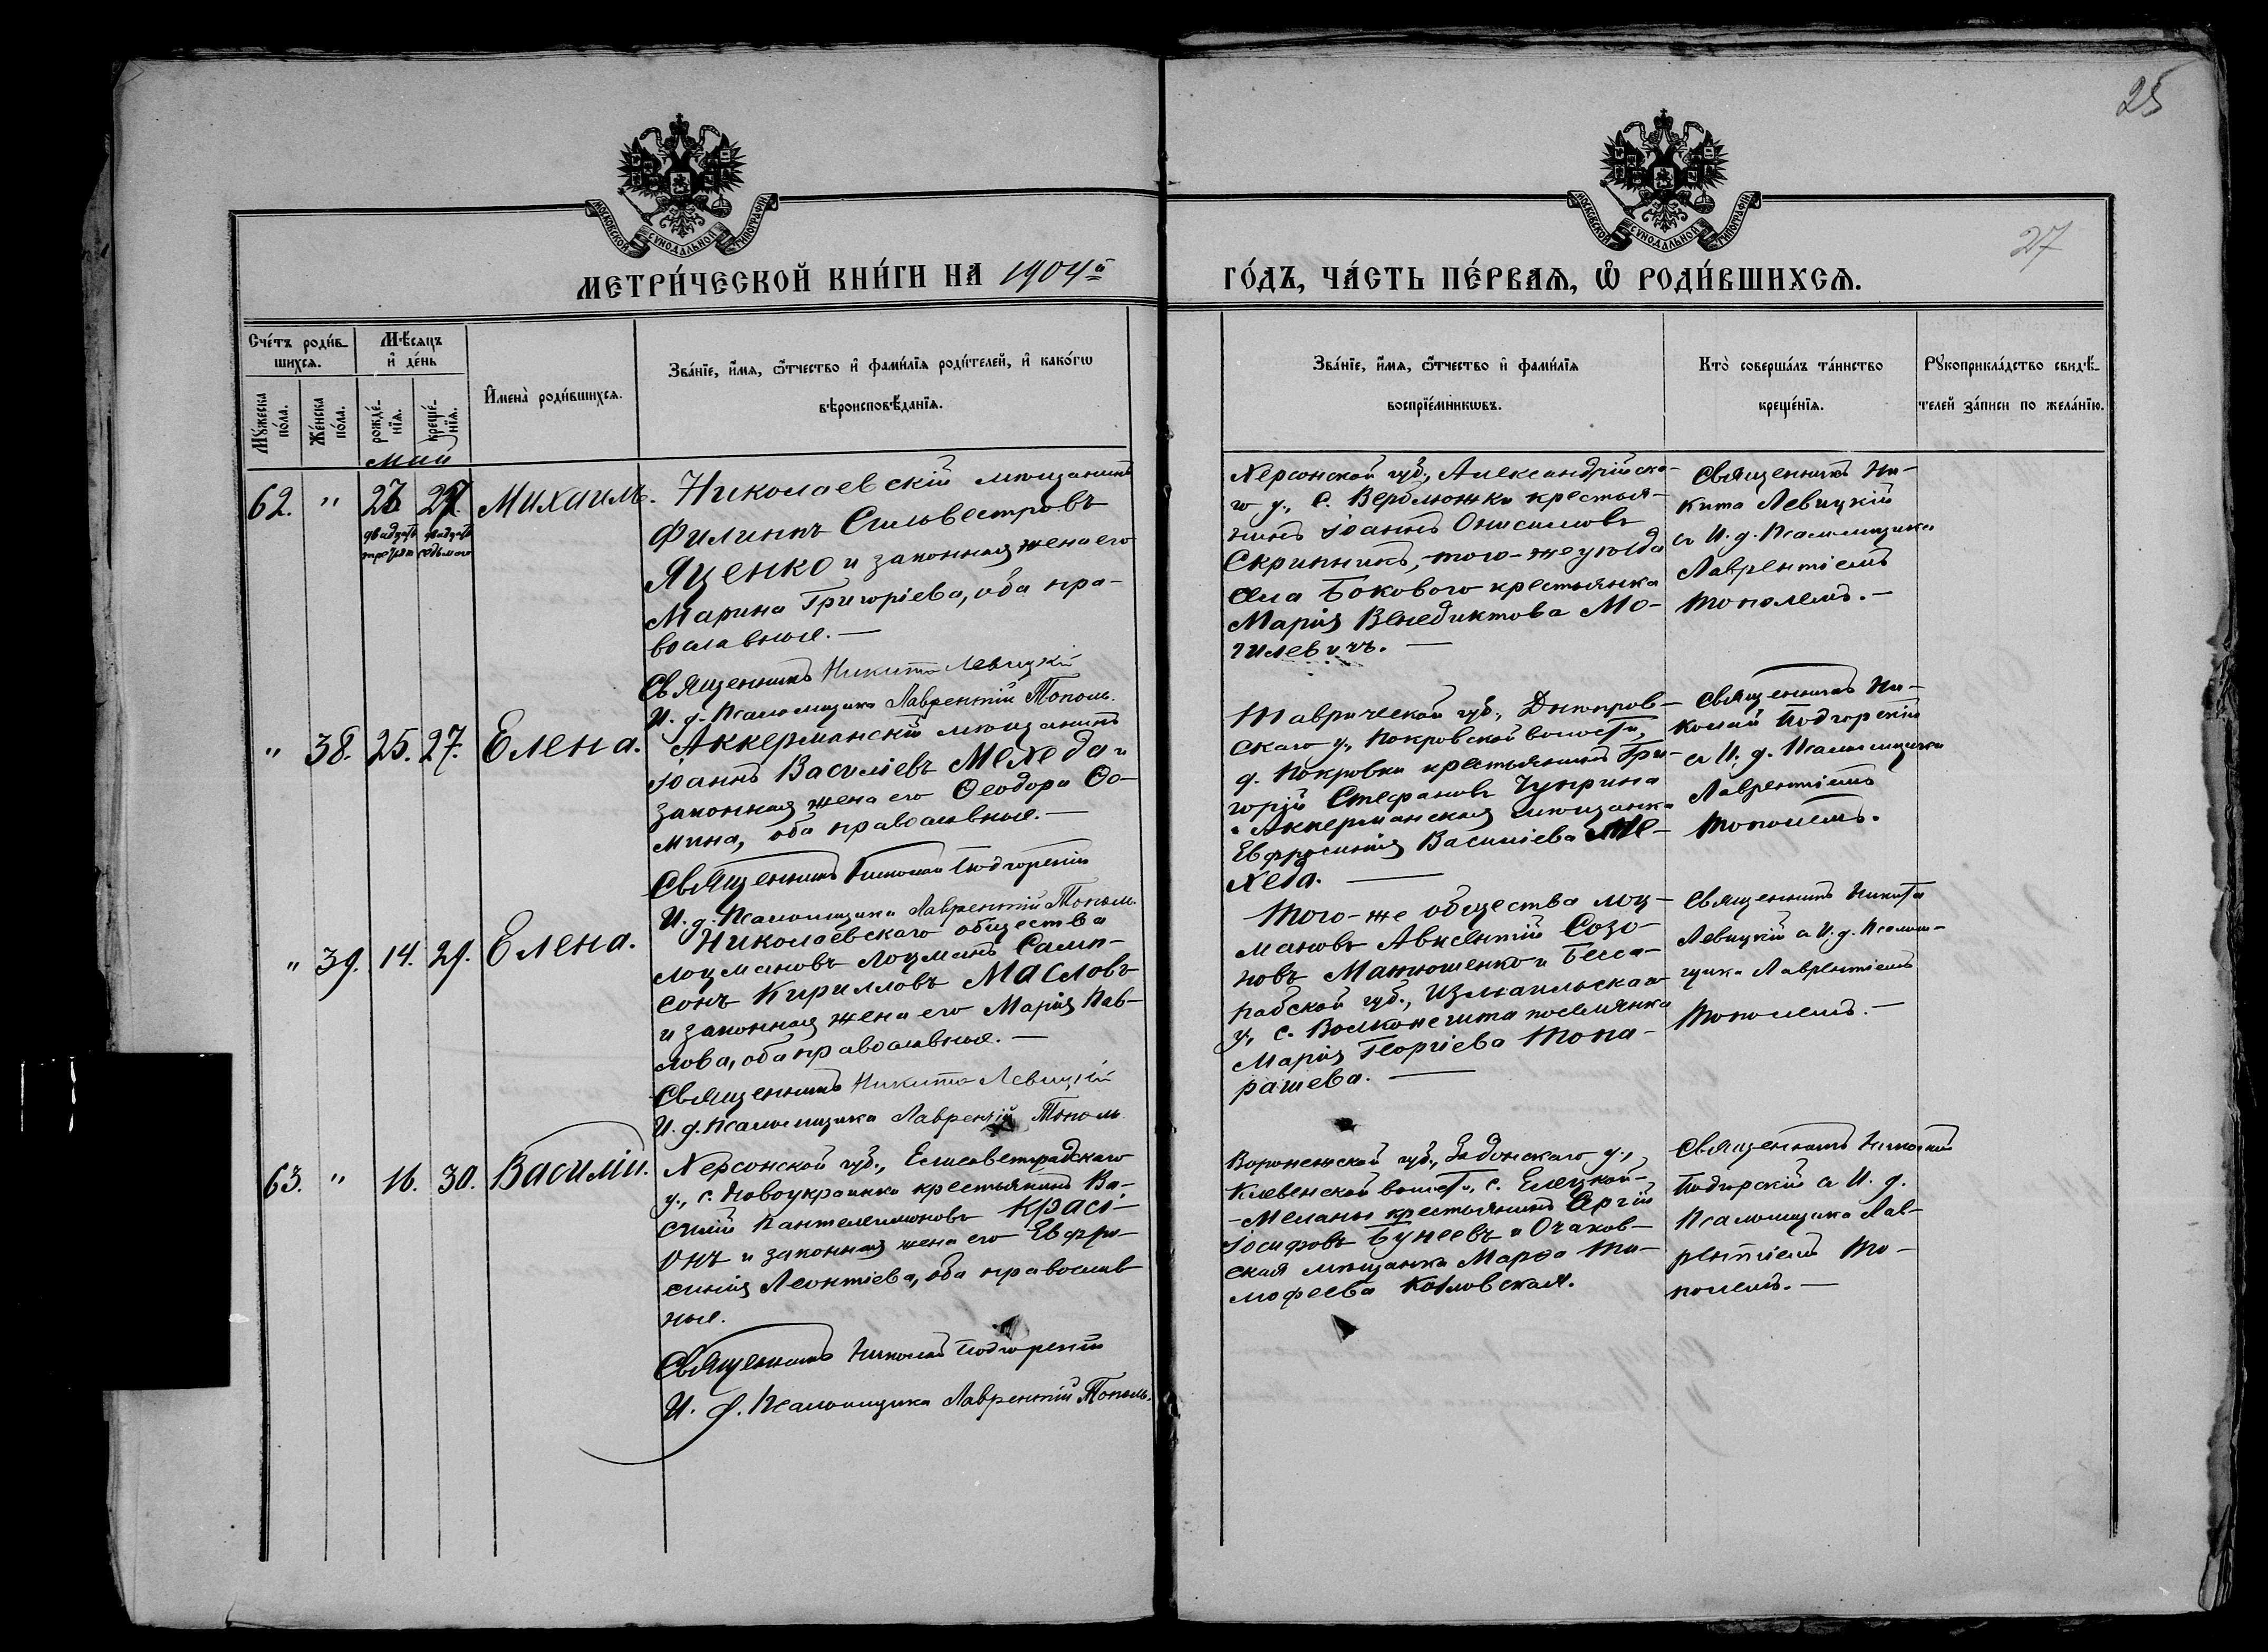 25
27
МОСКОВСКОЙ СУНОДАЛЬНОЙ ТИПОГРАФІИ
МОСКОВСКОЙ СУНОДАЛЬНОЙ ТИПОГРАФІИ
МЕТРИ́ЧЕСКОЙ КНИ́ГИ НА 1904й
ГО́ДЪ, ЧА́СТЬ ПЕ́РВАѦ, Ѽ РОДИ́ВШИХСѦ.
Сче́тъ роди́в-
шихсѧ.
Мꙋ́жеска
по́ла.
Же́нска
по́ла.
Мѣ́сѧцъ
и҆ де́нь
рожде́-
нїѧ.
креще́-
нїѧ.
И҆мена̀ роди́вшихсѧ.
Зва́нїе, и҆́мѧ, ѻ҆́тчество и҆ фами́лїѧ роди́телей, и҆ како́гѡ
вѣроисповѣ́данїѧ.
Зва́нїе, и҆́мѧ, ѻ҆́тчество и҆ фами́лїѧ
воспрїе́мникѡвъ.
Кто̀ соверша́лъ та́инство
креще́нїѧ.
Рꙋкоприкла́дство свидѣ́-
телей за́писи по жела́нїю.
Май
62. " 23 27. Михаилъ.
двадцать третьяго двадцать седьмого
Николаевскій мѣщанинъ
Филиппъ Сильвестровъ
Яценко и законная жена его
Марина Григоріева, оба пра-
вославные. —
Священникъ Никита Левицкій
И. д. Псаломщика Лаврентій Тополь.
Херсонской губ., Александрійска-
го у., с. Верблюжки крестья-
нинъ Іоаннъ Онисимовъ
Скрипникъ, того-же уѣзда
села Бокового крестьянка
Марія Венедиктова Мо-
гилевичъ. —
Священникъ Ни-
кита Левицкій
съ И. д. Псаломщика
Лаврентіемъ
Тополемъ. —
" 38. 25. 27. Елена.
Аккерманскій мѣщанинъ
Іоаннъ Василіевъ Мехеда и
законная жена его Ѳеодора Ѳо-
мина, оба православные. —
Священникъ Николай Подгорскій
И. д. Псаломщика Лаврентій Тополь.
Таврической губ., Днѣпров-
скаго у., Покровской волости,
д. Покровки крестьянинъ Гри-
горій Стефановъ Чуприна
и Аккерманская мѣщанка
Евфросинія Василіева Ме-
хеда. —
Священникъ Ни-
колай Подгорскій
съ И. д. Псаломщика
Лаврентіемъ
Тополемъ.
" 39. 14. 29. Елена.
Николаевскаго общества
лоцмановъ лоцманъ Самп-
сонъ Кирилловъ Масловъ
и законная жена его Марія Пав-
лова, оба православные. —
Священникъ Никита Левицкій
И. д. Псаломщика Лаврентій Тополь
Того-же общества лоц-
мановъ Авксентій Созо-
новъ Манюшенко и Бесса-
рабской губ., Измаильскаго
у., с. поселянка
Марія Георгіева Топа-
рашева. —
Священникъ Никита
Левицкій съ И. д. Псалом-
щика Лаврентіемъ
Тополемъ. —
63. " 16. 30. Василій.
Херсонской губ., Елисаветградскаго
у., с. Новоукраинки крестьянинъ Ва-
силій Пантелеимоновъ Красі-
онъ и законная жена его Евфро-
синія Леонтіева, оба православ-
ные.
Священникъ Николай Подгорскій
И. д. Псаломщика Лаврентій Тополь.
Воронежской губ., Задонскаго у.,
волости, с. Елецкой-
-Меланы крестьянинъ Сергій
Іосифовъ Бунеевъ и Очаков-
ская мѣщанка Марѳа Ти-
мофеева Козловская.
Священникъ Николай
Подгорскій съ И. д.
Псаломщика Лав-
рентіемъ То-
полемъ. —